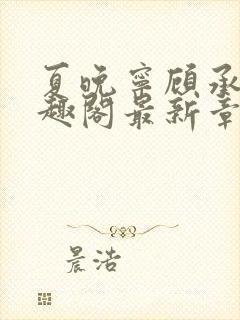 夏晚宁顾承
趣阁最新章
晨浩